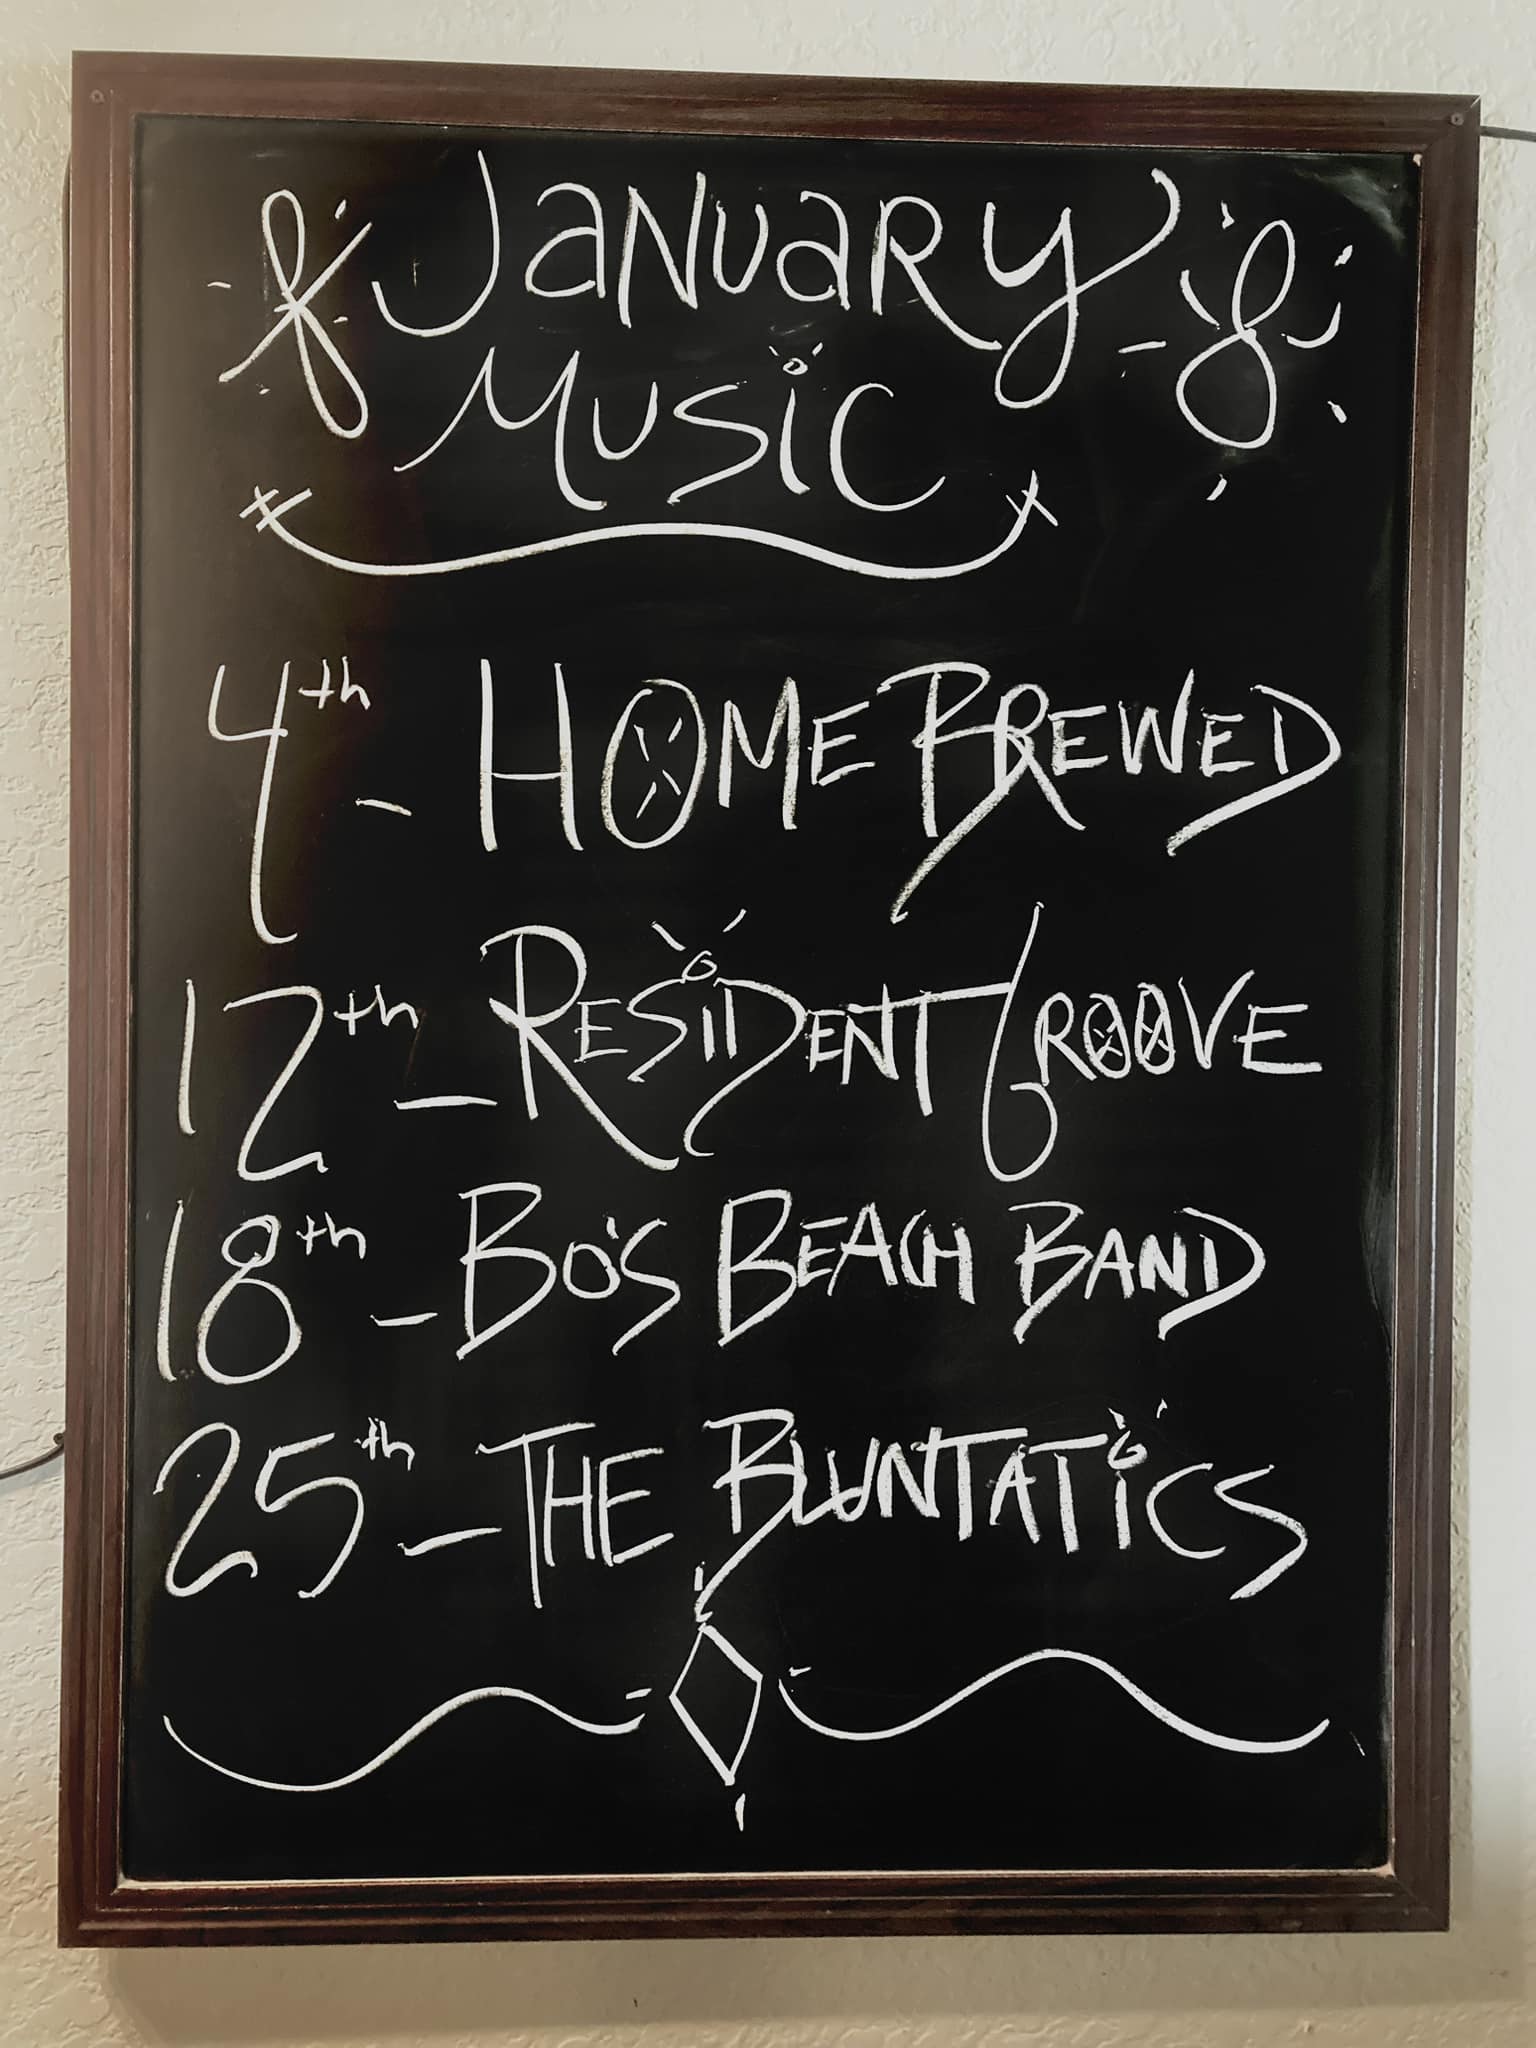 January
Music
4th - Home Brewed
12th - Resident Groove
18th - Bo's Beach Band
25th - The Bluntatics